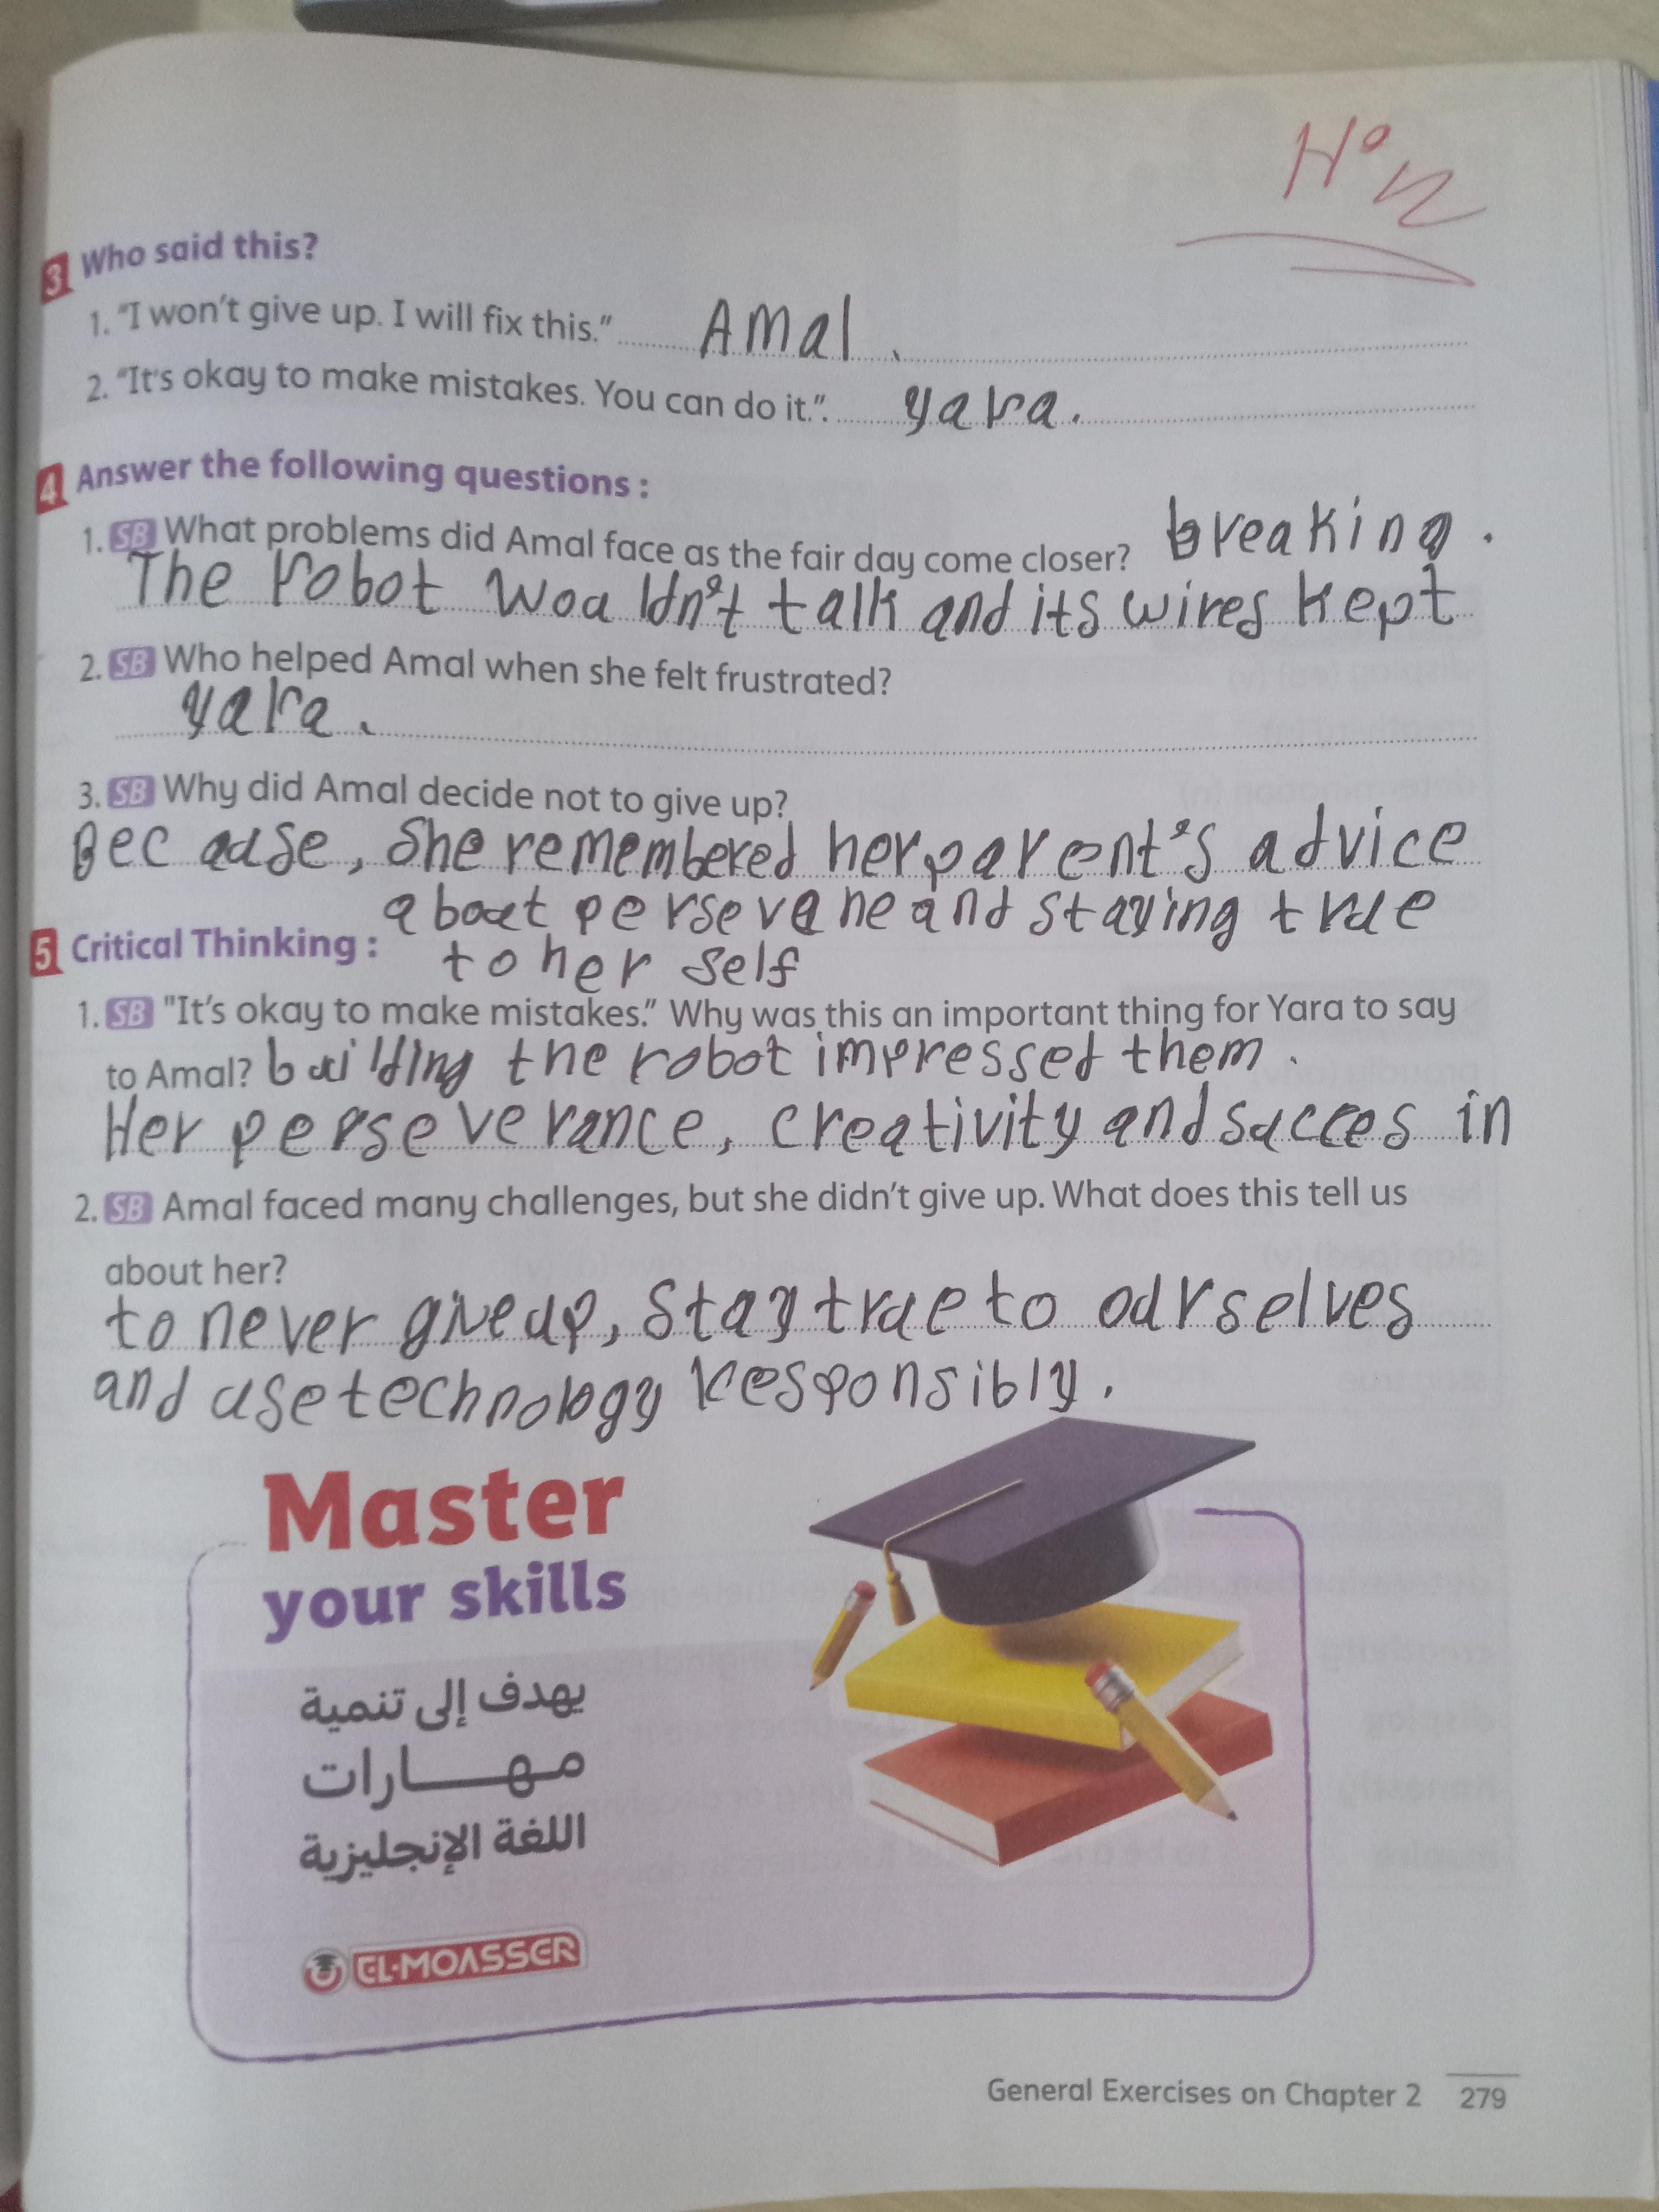 H.W
3 Who said this?
1. "I won't give up. I will fix this." Amal.
2. "It's okay to make mistakes. You can do it.". yara.
4 Answer the following questions :
1. SB What problems did Amal face as the fair day come closer? breaking.
The robot Wouldn't talk and its wires kept
2. SB Who helped Amal when she felt frustrated?
yara.
3. SB Why did Amal decide not to give up?
Because, She remembered her parent's advice
about persevane and staying true
5 Critical Thinking :
to her self
1. SB "It's okay to make mistakes." Why was this an important thing for Yara to say
to Amal? building the robot impressed them.
Her perseverance, creativity and succes in
2. SB Amal faced many challenges, but she didn't give up. What does this tell us
about her?
to never give up, Stay true to ourselves
and use technology responsibly.
Master
your skills
يهدف إلى تنمية
مهـــارات
اللغة الإنجليزية
EL-MOASSER
General Exercises on Chapter 2 279